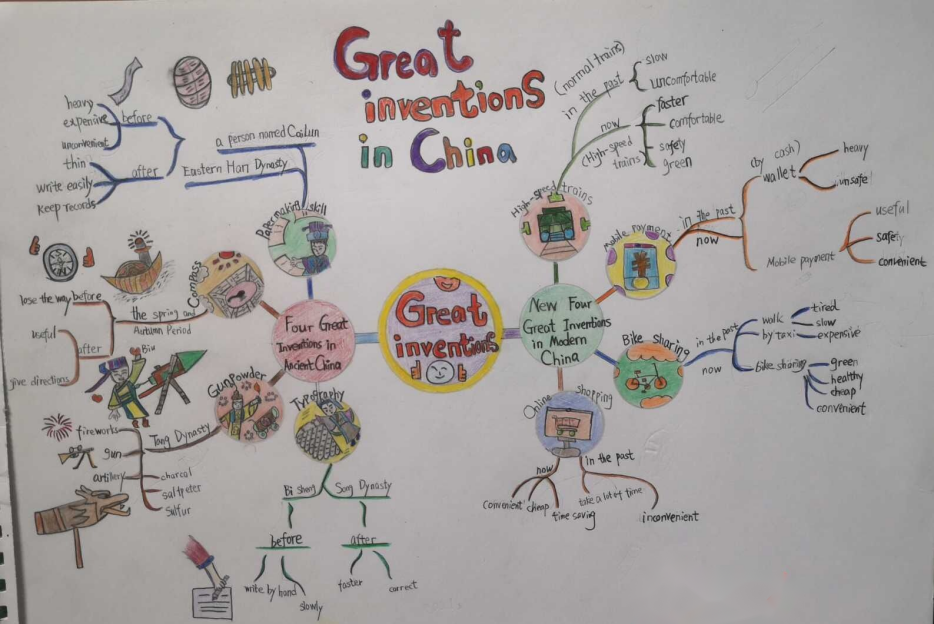 Great
inventions
in China
heavy
expenive
unconvenient
before
thin
write easily
keep records
after
a person named CaiLun
Eastern Han Dynasty
Paper making skill
Compass
the spring and
Autumn Period
before
lose the way
after
useful
give directions
Four Great
Inventions in
Ancient China
Gunpowder
Tang Dynasty
fireworks
gun
artillery
charcoal
saltpeter
sulfur
Biu
Typography
Bi sheng
Song Dynasty
before
write by hand
slowly
after
faster
correct
Great
inventions
New Four
Great Inventions
in Modern
China
High-speed trains
(normal trains)
in the past
slow
uncomfortable
now
(High-speed
trains)
faster
comfortable
safety
green
Mobile payment
in the past
now
(by cash)
wallet
heavy
unsafe!
Mobile payment
useful
safety
convenient
Bike sharing
in the past
walk
by taxi
tired
slow
expensive
now
Bike sharing
green
healthy
cheap
convenient
Online Shopping
now
convenient
cheap
time saving
in the past
take a lot of time
inconvenient